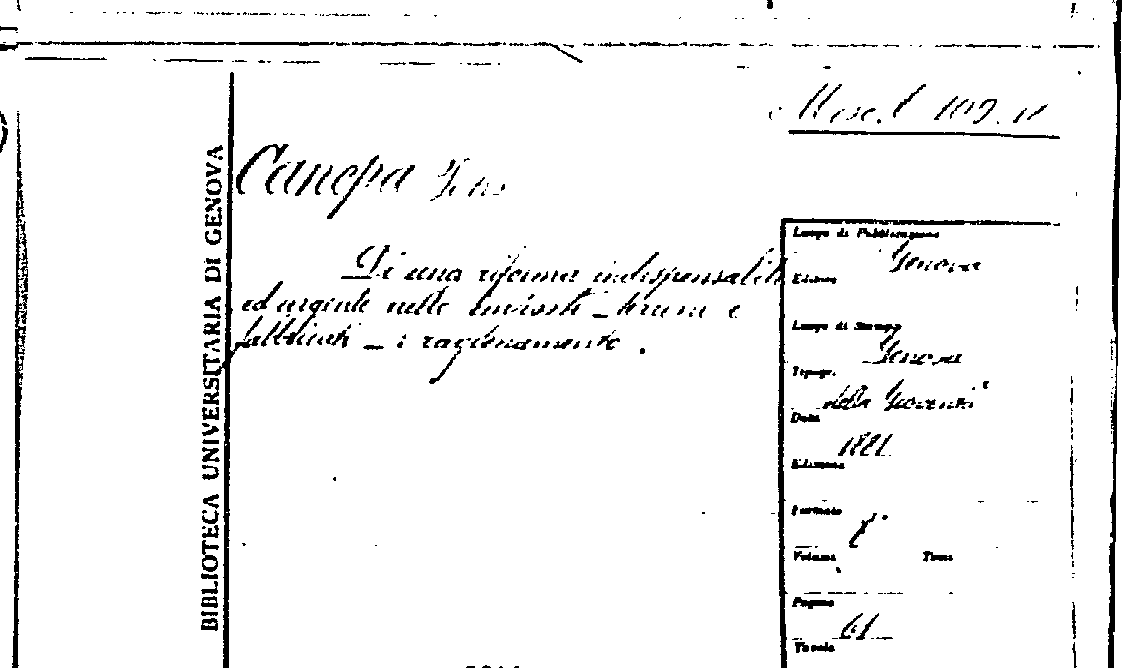 Misc. l 109. 11
Canepa
Di una riforma indispensabile
ed urgente nelle imposte – terreni e
fabbricati – : ragionamento .
BIBLIOTECA UNIVERSITARIA DI GENOVA
Luogo di Pubblicazione
Genova
Editore
Luogo di Stampa
Genova
Tipogr.
della Gioventù
Data
1881
Edizione
Formato
8°
Volume Tomo
Pagine
61
Tavole